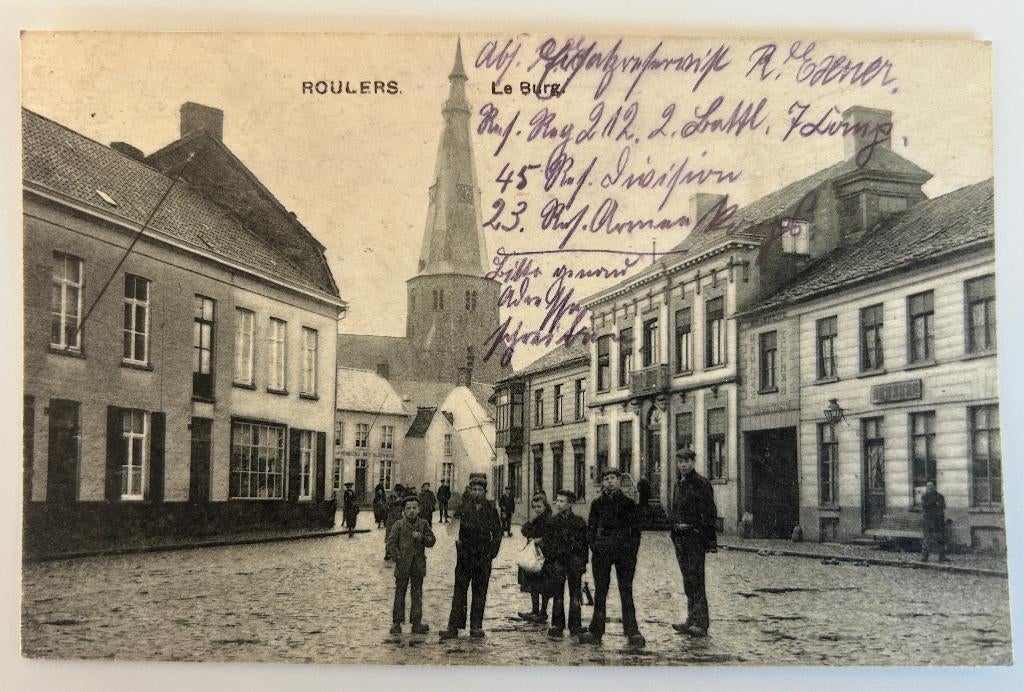 ROULERS. Le Burg.
Abs. Ersatzreservist R. Exner,
Res. Reg 212. 2. Battl. 7 Komp.
45 Res. Division
23. Res. Armee
Bitte genau
Adresse
schreiben